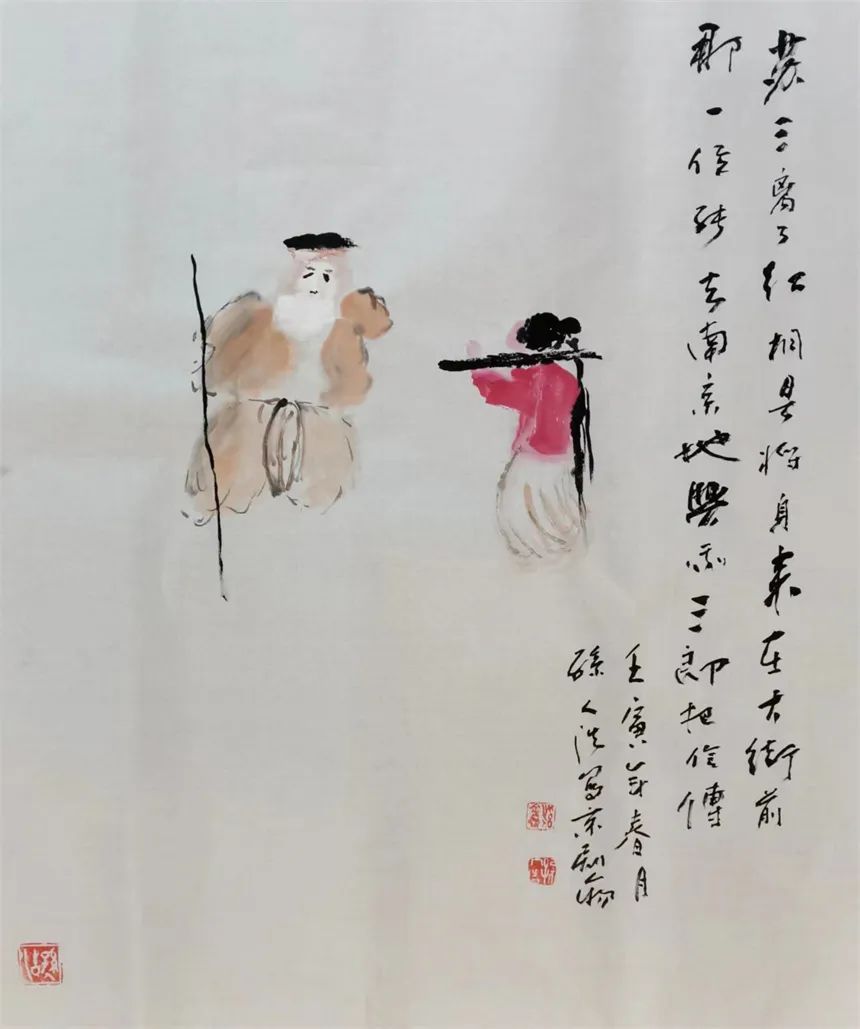 蘇三离了红桐县将身来在大街前
那一位转去南京地與我三郎把信傳
壬寅年春月
孫人寫京剧人物